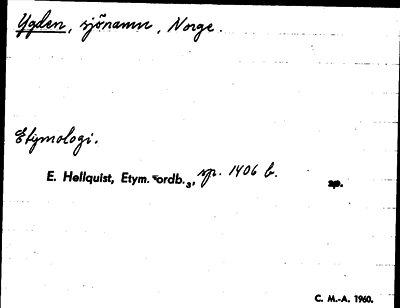 Ygden, sjönamn, Norge.
Etymologi.
E. Hellquist, Etym. ordb.₃, sp. 1406 b.
sp.
C. M.-A. 1960.